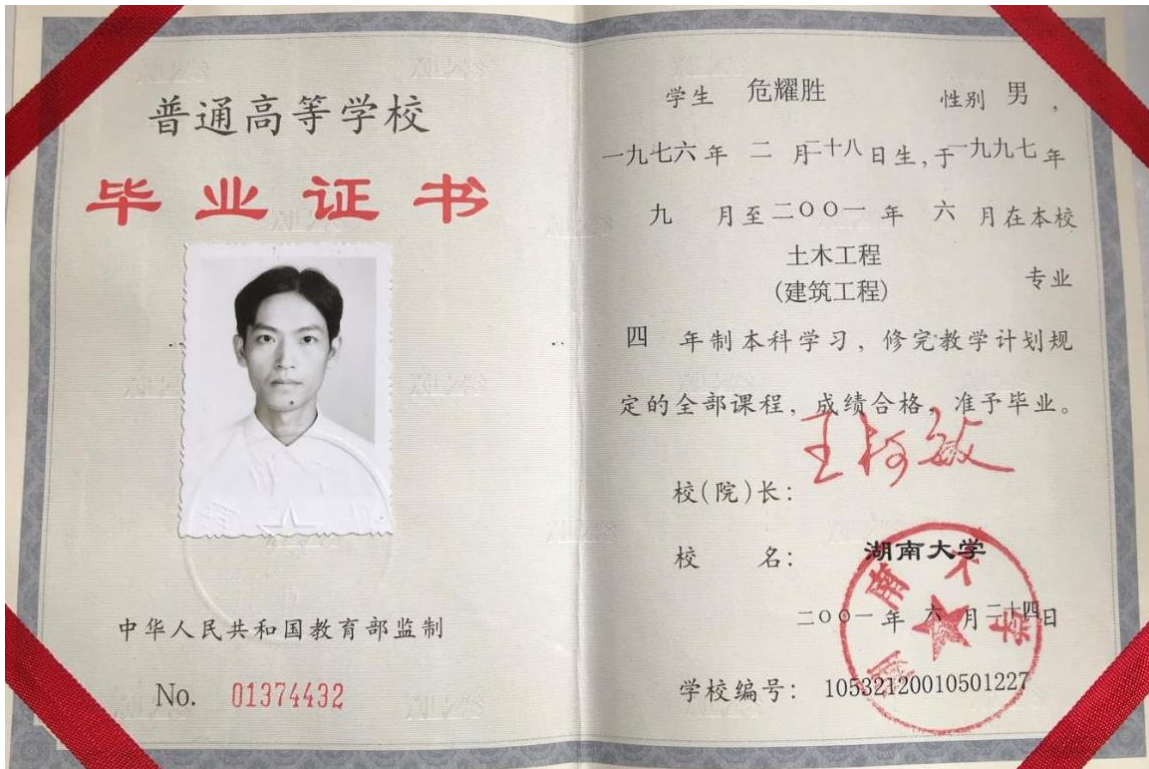 普通高等学校
毕业证书
中华人民共和国教育部监制
No. 01374432
学生 危耀胜 性别 男，
一九七六年 二 月二十八日生，于一九九七年
九 月至二〇〇一年 六 月在本校
土木工程
(建筑工程) 专业
四 年制本科学习，修完教学计划规
定的全部课程，成绩合格，准予毕业。
校(院)长： 王柯敏
校 名： 湖南大学
湖南大学
二〇〇一年 六 月二十四日
学校编号： 105321200105012​27